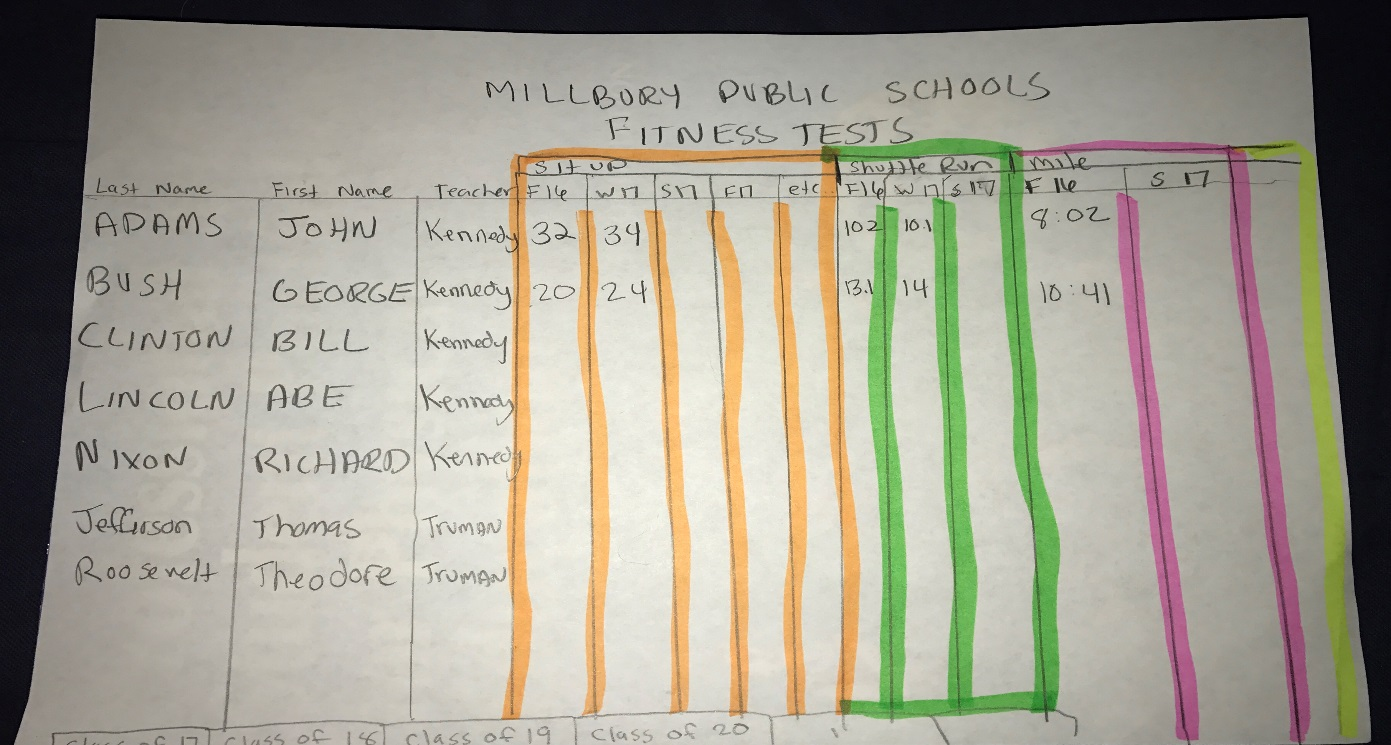 MILLBURY PUBLIC SCHOOLS
FITNESS TESTS
Sit up Shuttle Run Mile
Last Name First Name Teacher F16 W17 S17 F17 etc F16 W17 S17 F 16 S 17
ADAMS JOHN Kennedy 32 34 10.2 10.1 8:02
BUSH GEORGE Kennedy 20 24 13.1 14 10:41
CLINTON BILL Kennedy
LINCOLN ABE Kennedy
NIXON RICHARD Kennedy
Jefferson Thomas TRUMAN
Roosevelt Theodore TRUMAN
Class of 17 Class of 18 Class of 19 Class of 20